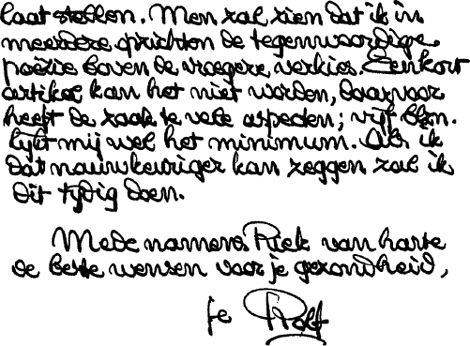 laat stellen. Men zal zien dat ik in
meerdere opzichten de tegenwoordige
poëzie boven de vroegere verkies. Een kort
artikel kan het niet worden, daarvoor
heeft de zaak te vele aspecten; vijf blzn.
lijkt mij wel het minimum. Als ik
dat nauwkeuriger kan zeggen zal ik
dit tijdig doen.
Mede namens Riek van harte
de beste wensen voor je gezondheid,
je Rolf